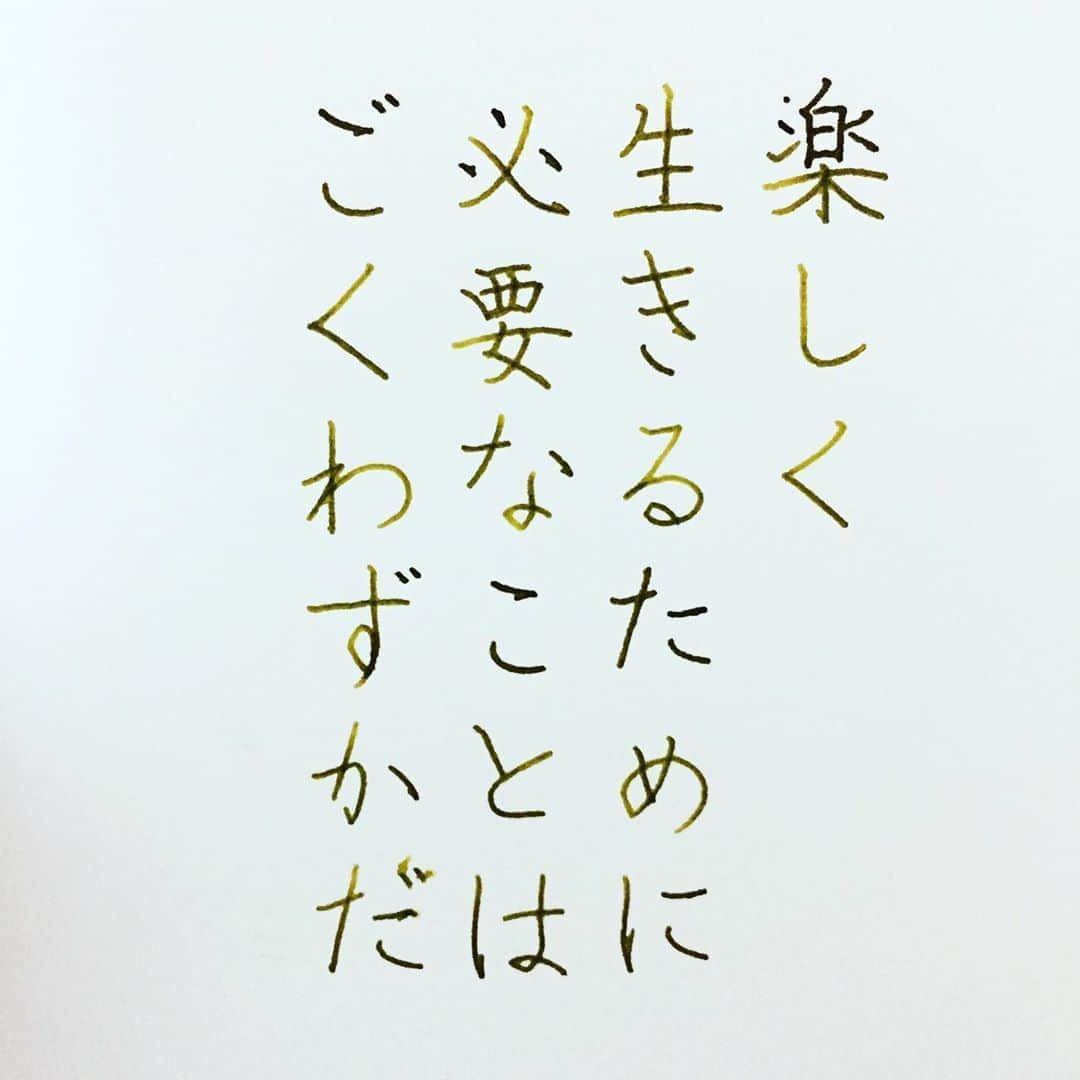 楽しく
生きるために
必要なことは
ごくわずかだ